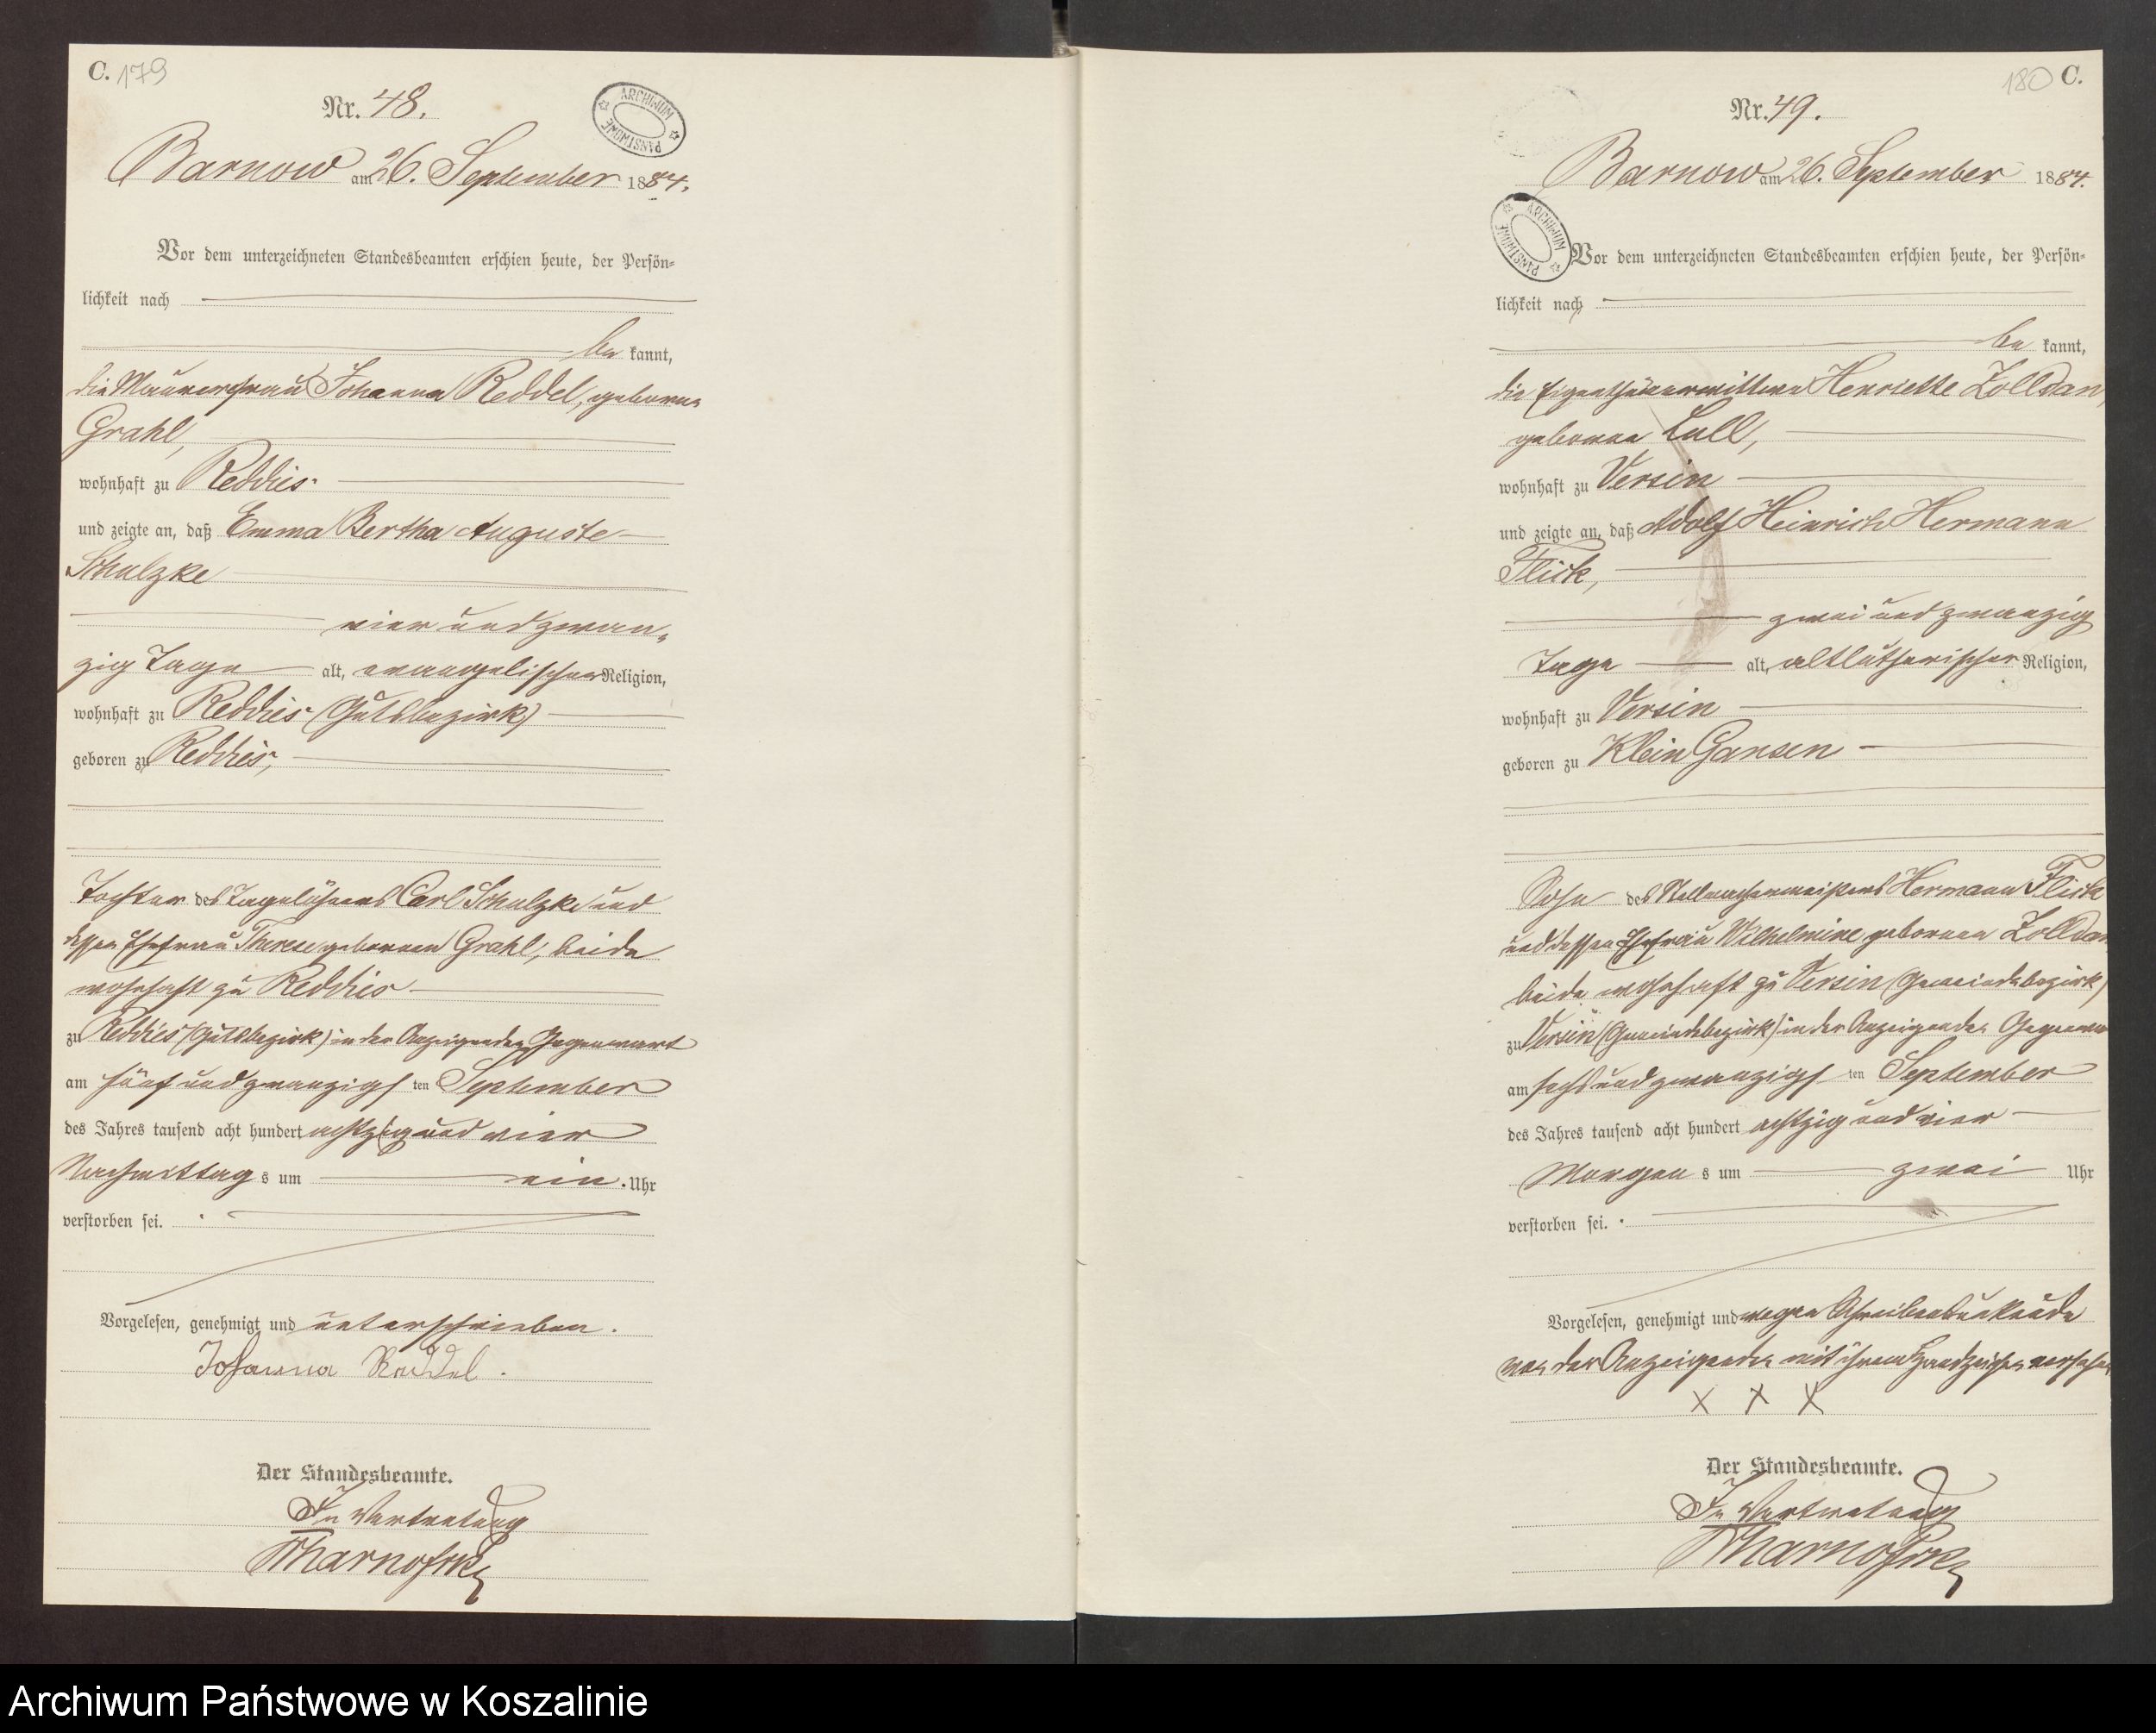 C. 179
Nr. 48.
ARCHIWUM PAŃSTWOWE
Barnow am 26. September 1884.
Vor dem unterzeichneten Standesbeamten erschien heute, der Persön-
lichkeit nach
be kannt,
die Maurerfrau Johanna Reddel, geborne
Grahl,
wohnhaft zu Reddies
und zeigte an, daß Emma Bertha Auguste
Schulzke
vier und zwan-
zig Tage alt, evangelischer Religion,
wohnhaft zu Reddies (Gutsbezirk)
geboren zu Reddies,
Tochter des Tagelöhners Carl Schulzke und
dessen Ehefrau Therese gebornen Grahl, beide
wohnhaft zu Reddies
zu Reddies (Gutsbezirk) in der Anzeigenden Gegenwart
am fünf und zwanzigs ten September
des Jahres tausend acht hundert achtzig und vier
Nachmittag s um ein Uhr
verstorben sei.
Vorgelesen, genehmigt und unterschrieben.
Johanna Reddel.
Der Standesbeamte.
In Vertretung
180 C.
Nr. 49.
Barnow am 26. September 1884.
ARCHIWUM PAŃSTWOWE
Vor dem unterzeichneten Standesbeamten erschien heute, der Persön-
lichkeit nach
be kannt,
die Eigenthümerwittwe Henriette Zolldan,
geborene Lull,
wohnhaft zu Versin
und zeigte an, daß Adolf Heinrich Hermann
Flick,
zwei und zwanzig
Tage alt, altlutherischer Religion,
wohnhaft zu Versin
geboren zu Klein Gansen
Sohn des Stellmachermeisters Hermann Flick
und dessen Ehefrau Wilhelmine gebornen Zolldan
beide wohnhaft zu Versin (Gemeindebezirk)
zu Versin (Gemeindebezirk) in der Anzeigenden Gegenwart
am sechs und zwanzigs ten September
des Jahres tausend acht hundert achtzig und vier
Morgen s um zwei Uhr
verstorben sei.
Vorgelesen, genehmigt und wegen Schreibensunkunde
von der Anzeigenden mit ihrem Handzeichen versehen
X X X
Der Standesbeamte.
In Vertretung
Archiwum Państwowe w Koszalinie